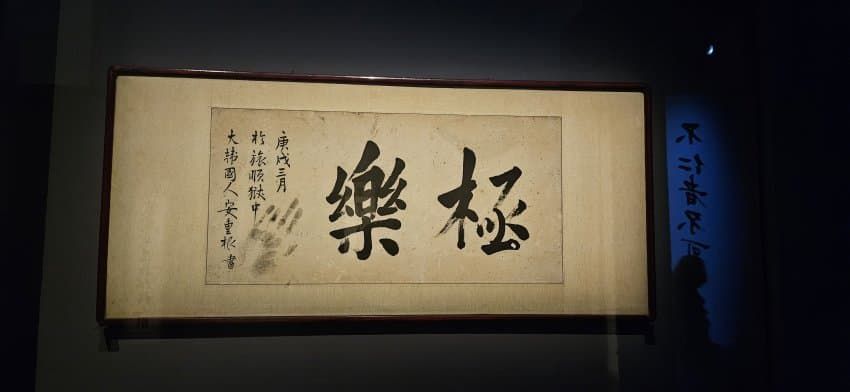 極樂
庚戌三月
於旅順獄中
大韓國人安重根書
不仁者不可